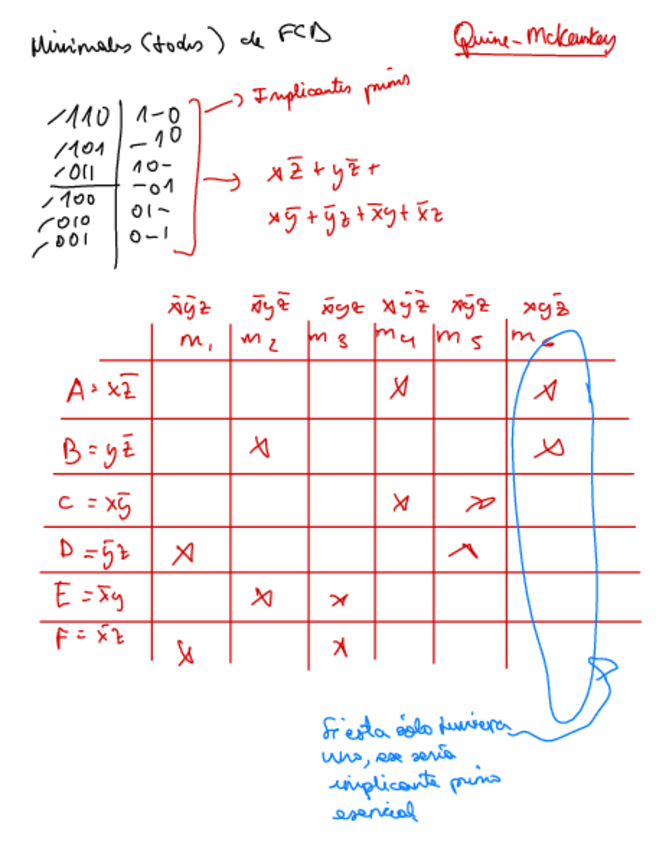 Minimales (todos) de FCD
Quine-McKluskey
110 | 1-0
101 | -10
011 | 10-
100 | -01
010 | 01-
001 | 0-1
→ Implicantes primos
→ xz̅ + yz̅ +
xy̅ + y̅z + x̅y + x̅z
x̅y̅z x̅yz̅ x̅yz xy̅z̅ xy̅z xyz̅
m1 m2 m3 m4 m5 m6
A = xz̅ x x
B = yz̅ x x
C = xy̅ x x
D = y̅z x x
E = x̅y x x
F = x̅z x x
Si esta sólo tuviera
uno, ese sería
implicante primo
esencial